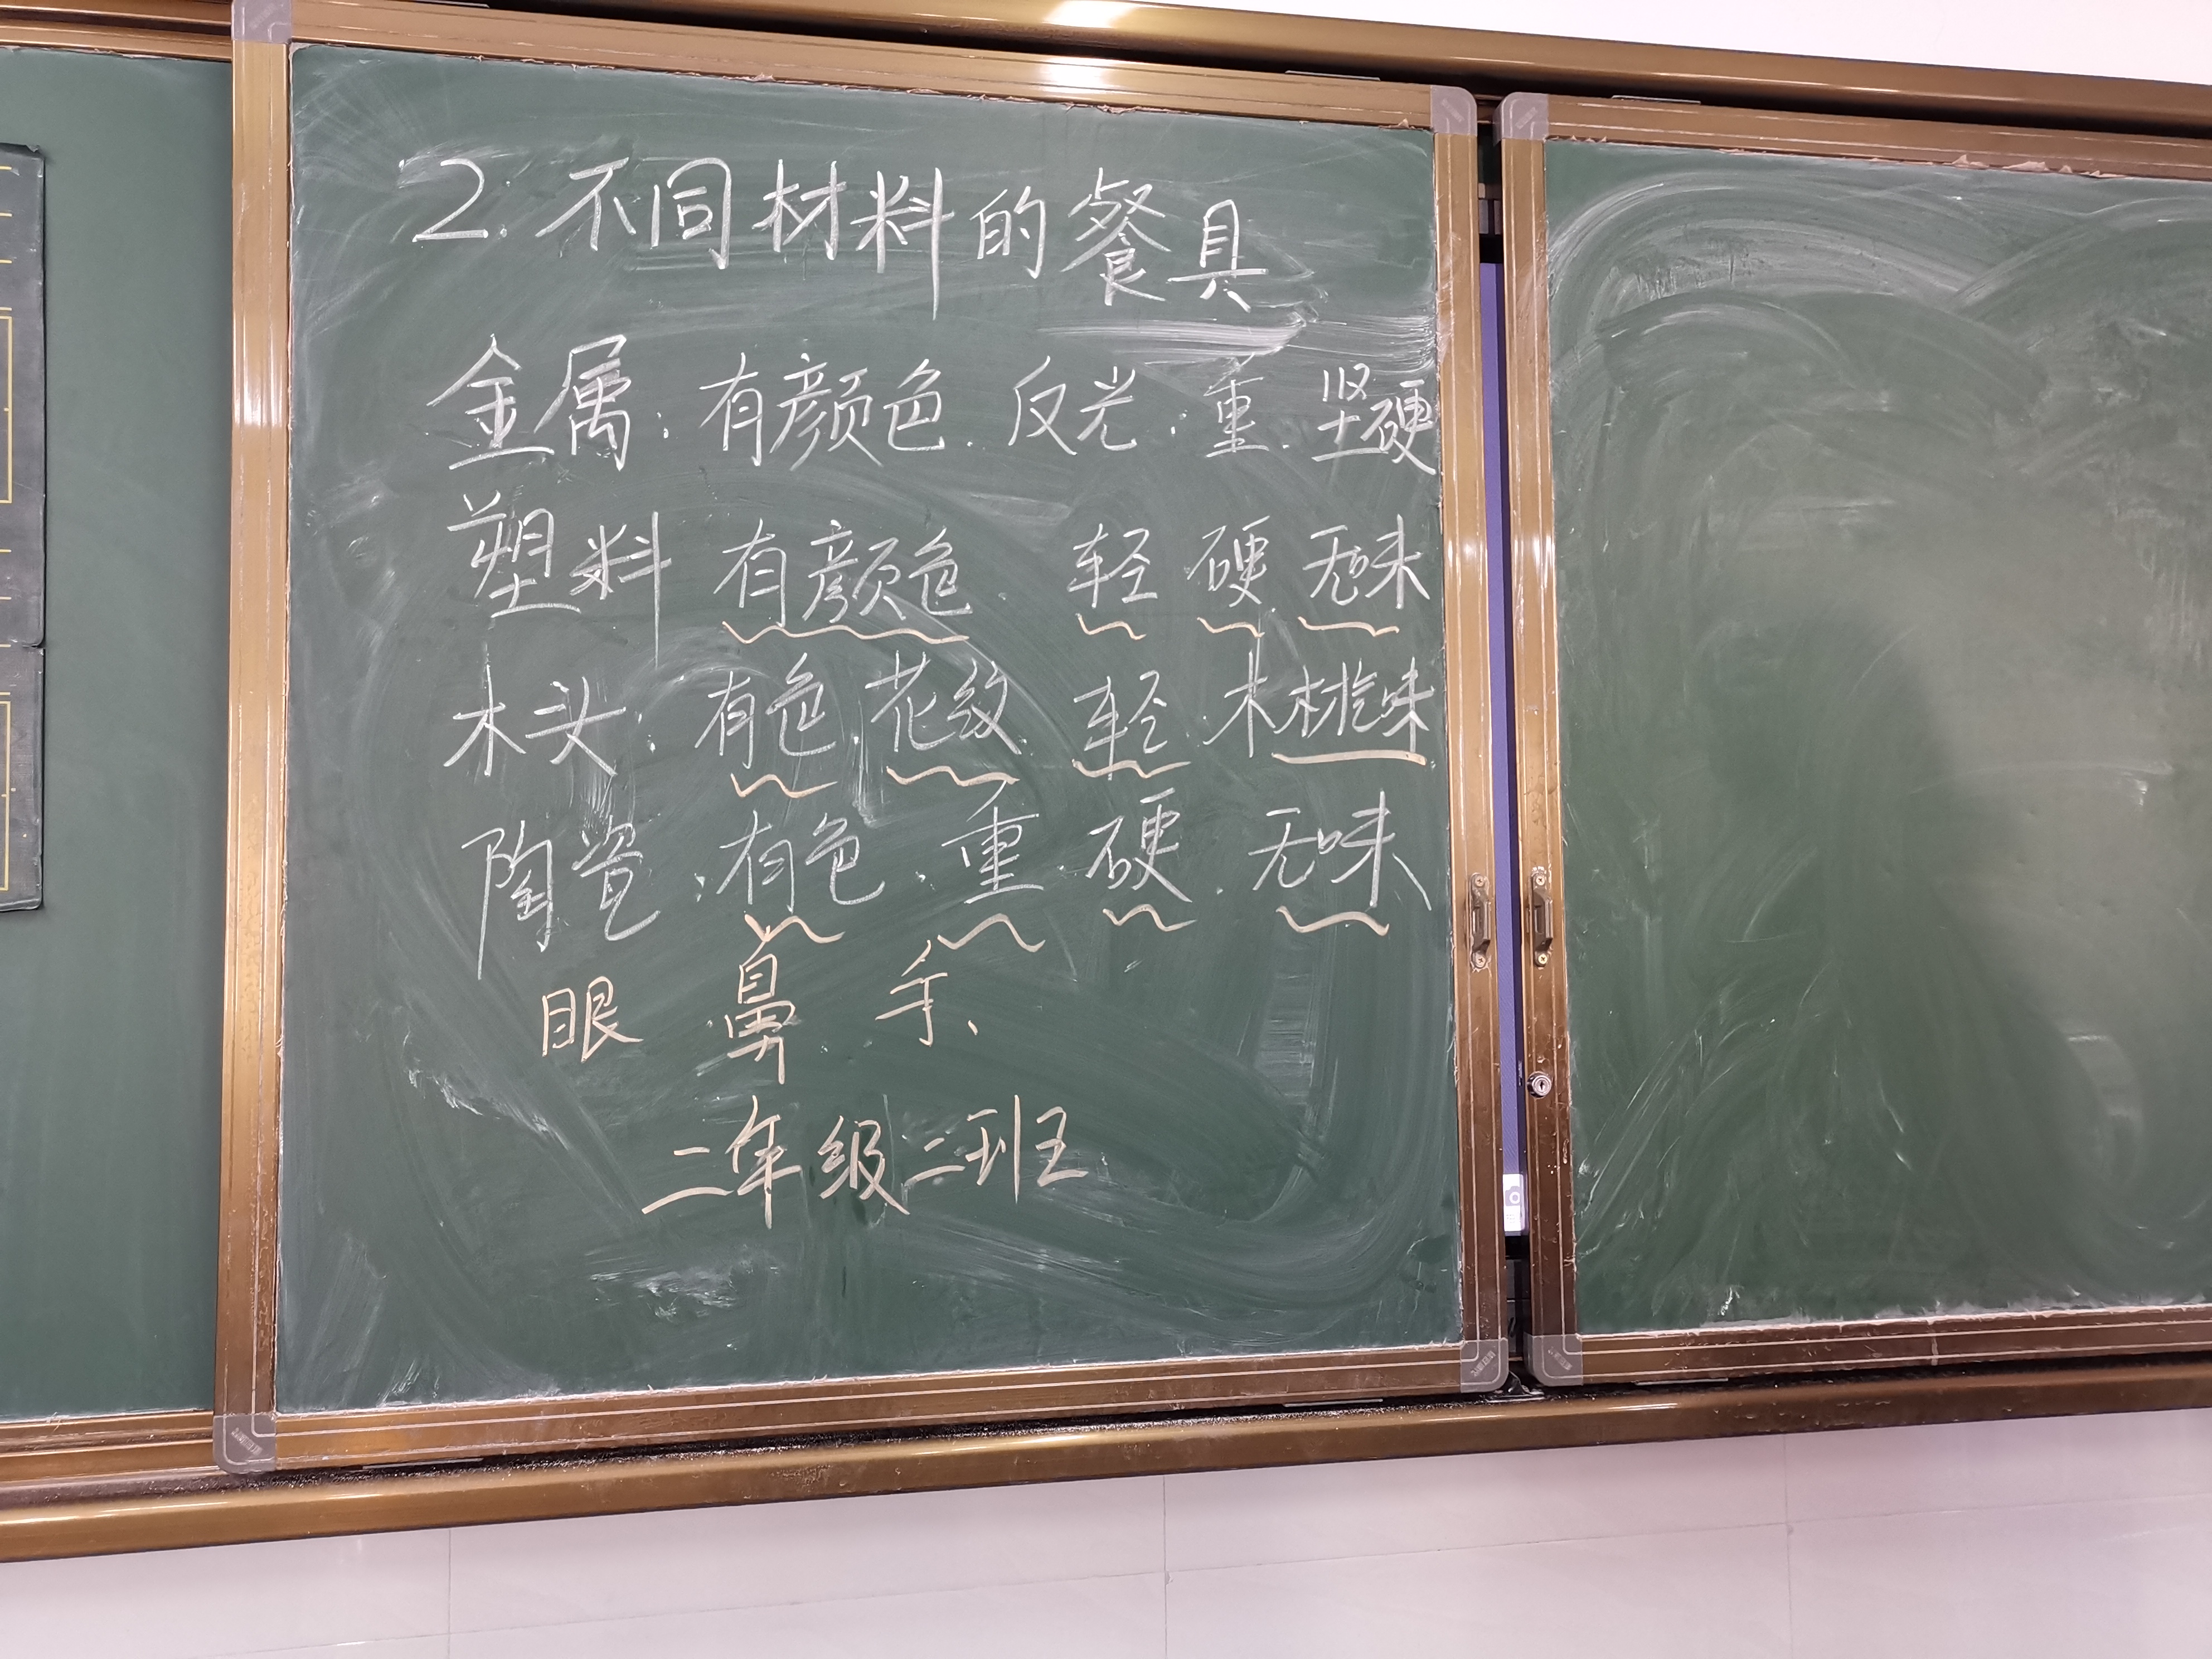 2. 不同材料的餐具
金属: 有颜色. 反光. 重. 坚硬
塑料 有颜色. 轻 硬 无味
木头: 有色. 花纹 轻. 木桃味
陶瓷: 有色. 重. 硬. 无味
眼 鼻 手、
二年级二班